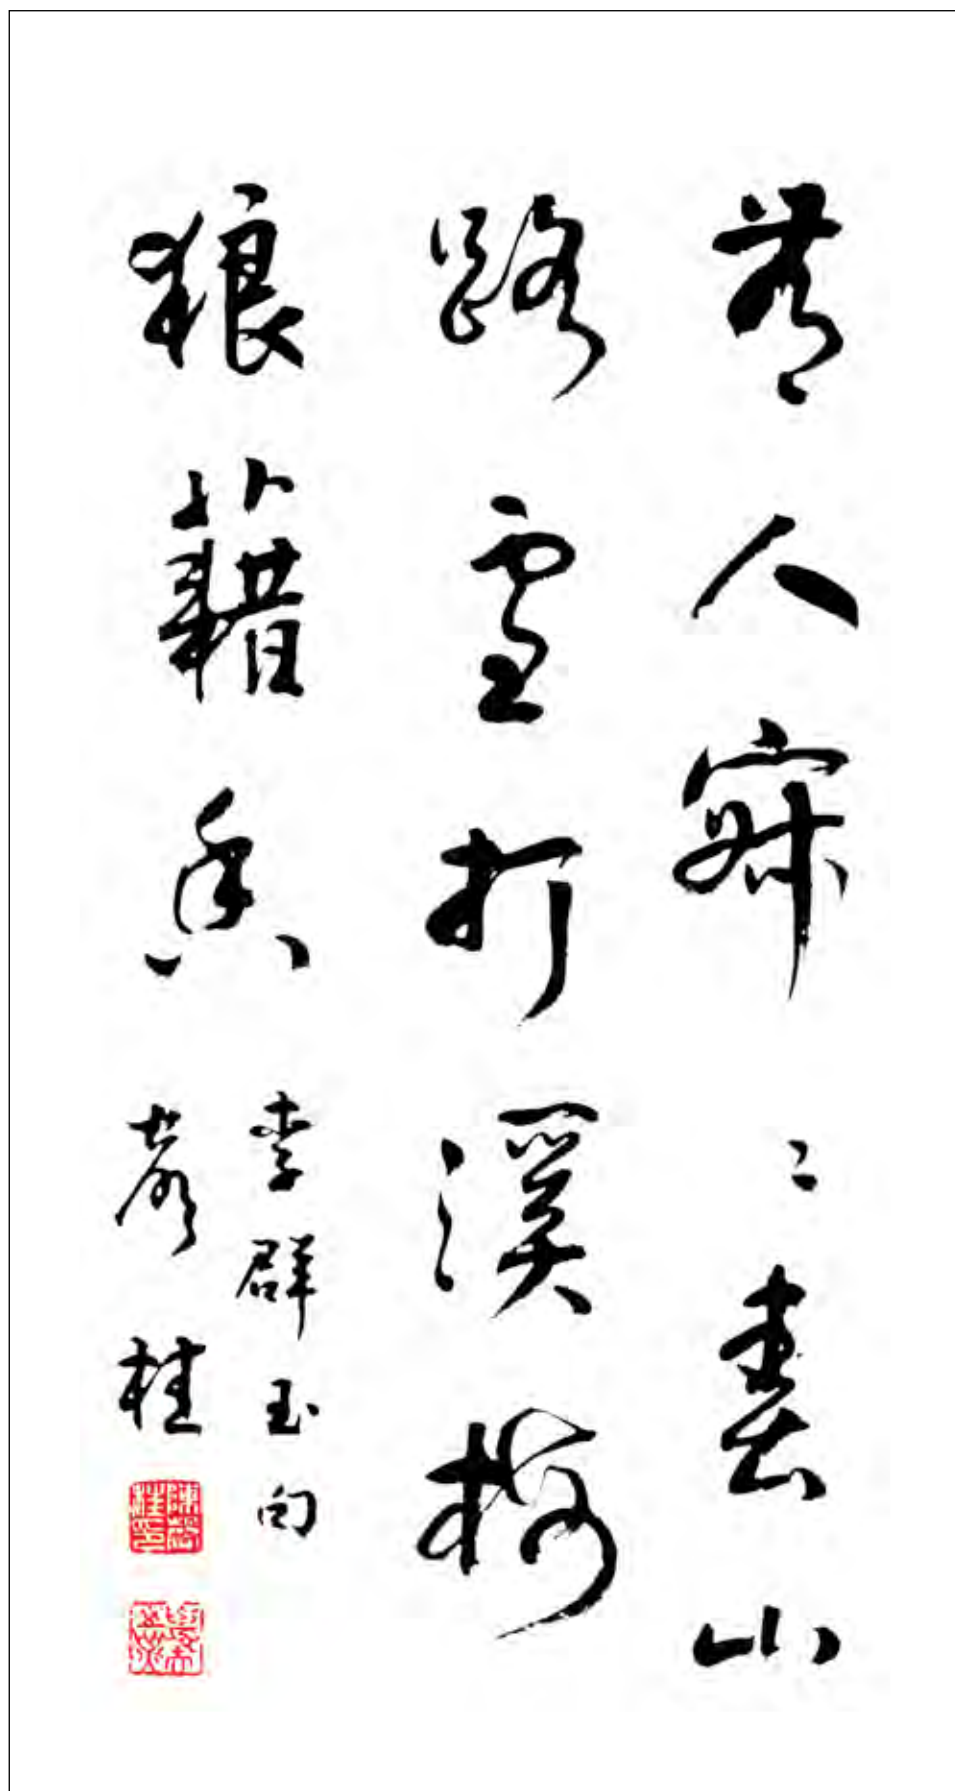 無人寂〻春山
路雪打溪梅
狼藉香
李群玉句
聲桂
陳聲桂印